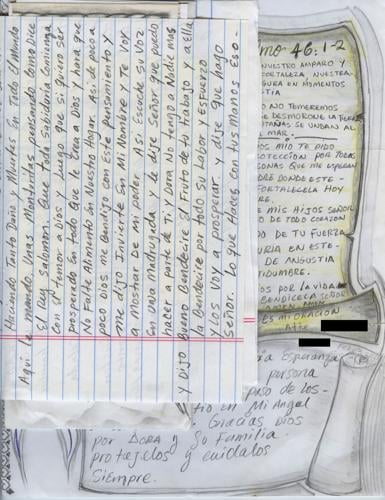 Haciendo tanto Daño y Muertes En Todo El Mundo
Aqui le mando Unas Monduridas pensando como Dice
El Rey Salomon. Que toda Sabiduria Comienza
Con El temor a Dios y luego que si quiero ser
prosperado En todo que le crea a Dios y hara que
No Falte Alimento En Nuestro Hogar. Asi de poco a
poco dios me Bendijo con Este pensamiento y
me dijo Invierte En Mi Nombre y Te Voy
a Mostrar De Mi poder. y Asi Escuche su Voz
En Una Madrugada y le dije Señor que puedo
hacer a parte de Ti y Dora No tengo a Nadie mas
y Dijo Bueno Bendecire El Fruto de tu trabajo y a ella
la Bendecire por todo su Labor y Esfuerzo
y Los Voy a prosperar. y dije que hago
Señor. Lo que Haces con tus Manos Eso-
mo 46:1-2
NUESTRO AMPARO Y
FORTALEZA NUESTRA
SEGURA EN MOMENTOS
STIA
O NO TEMEREMOS
SE DESMORONE LA TIERRA
NTAÑAS SE UNDAN AL
MAR.
OS MIO TE PIDO
OTECCION POR TODAS
SONAS QUE ME ESPERAN
DRE DONDE ESTE-
FORTALECELA HOY
RE.
E MIS HIJOS SEÑOR
O DE TODO CORAZON
O DE TU FUERZA
URIA EN ESTE-
DE ANGUSTIA
TIDUMBRE.
OS POR LA VIDA DE
BENDICELA SEÑOR
AMEN AMEN
ES MI ORACION
Atte
ia Esperanza
persona
paso de los-
tio en Mi Angel
Gracias Dios
por DORA y Su Familia.
protejelos y cuidalos
Siempre.